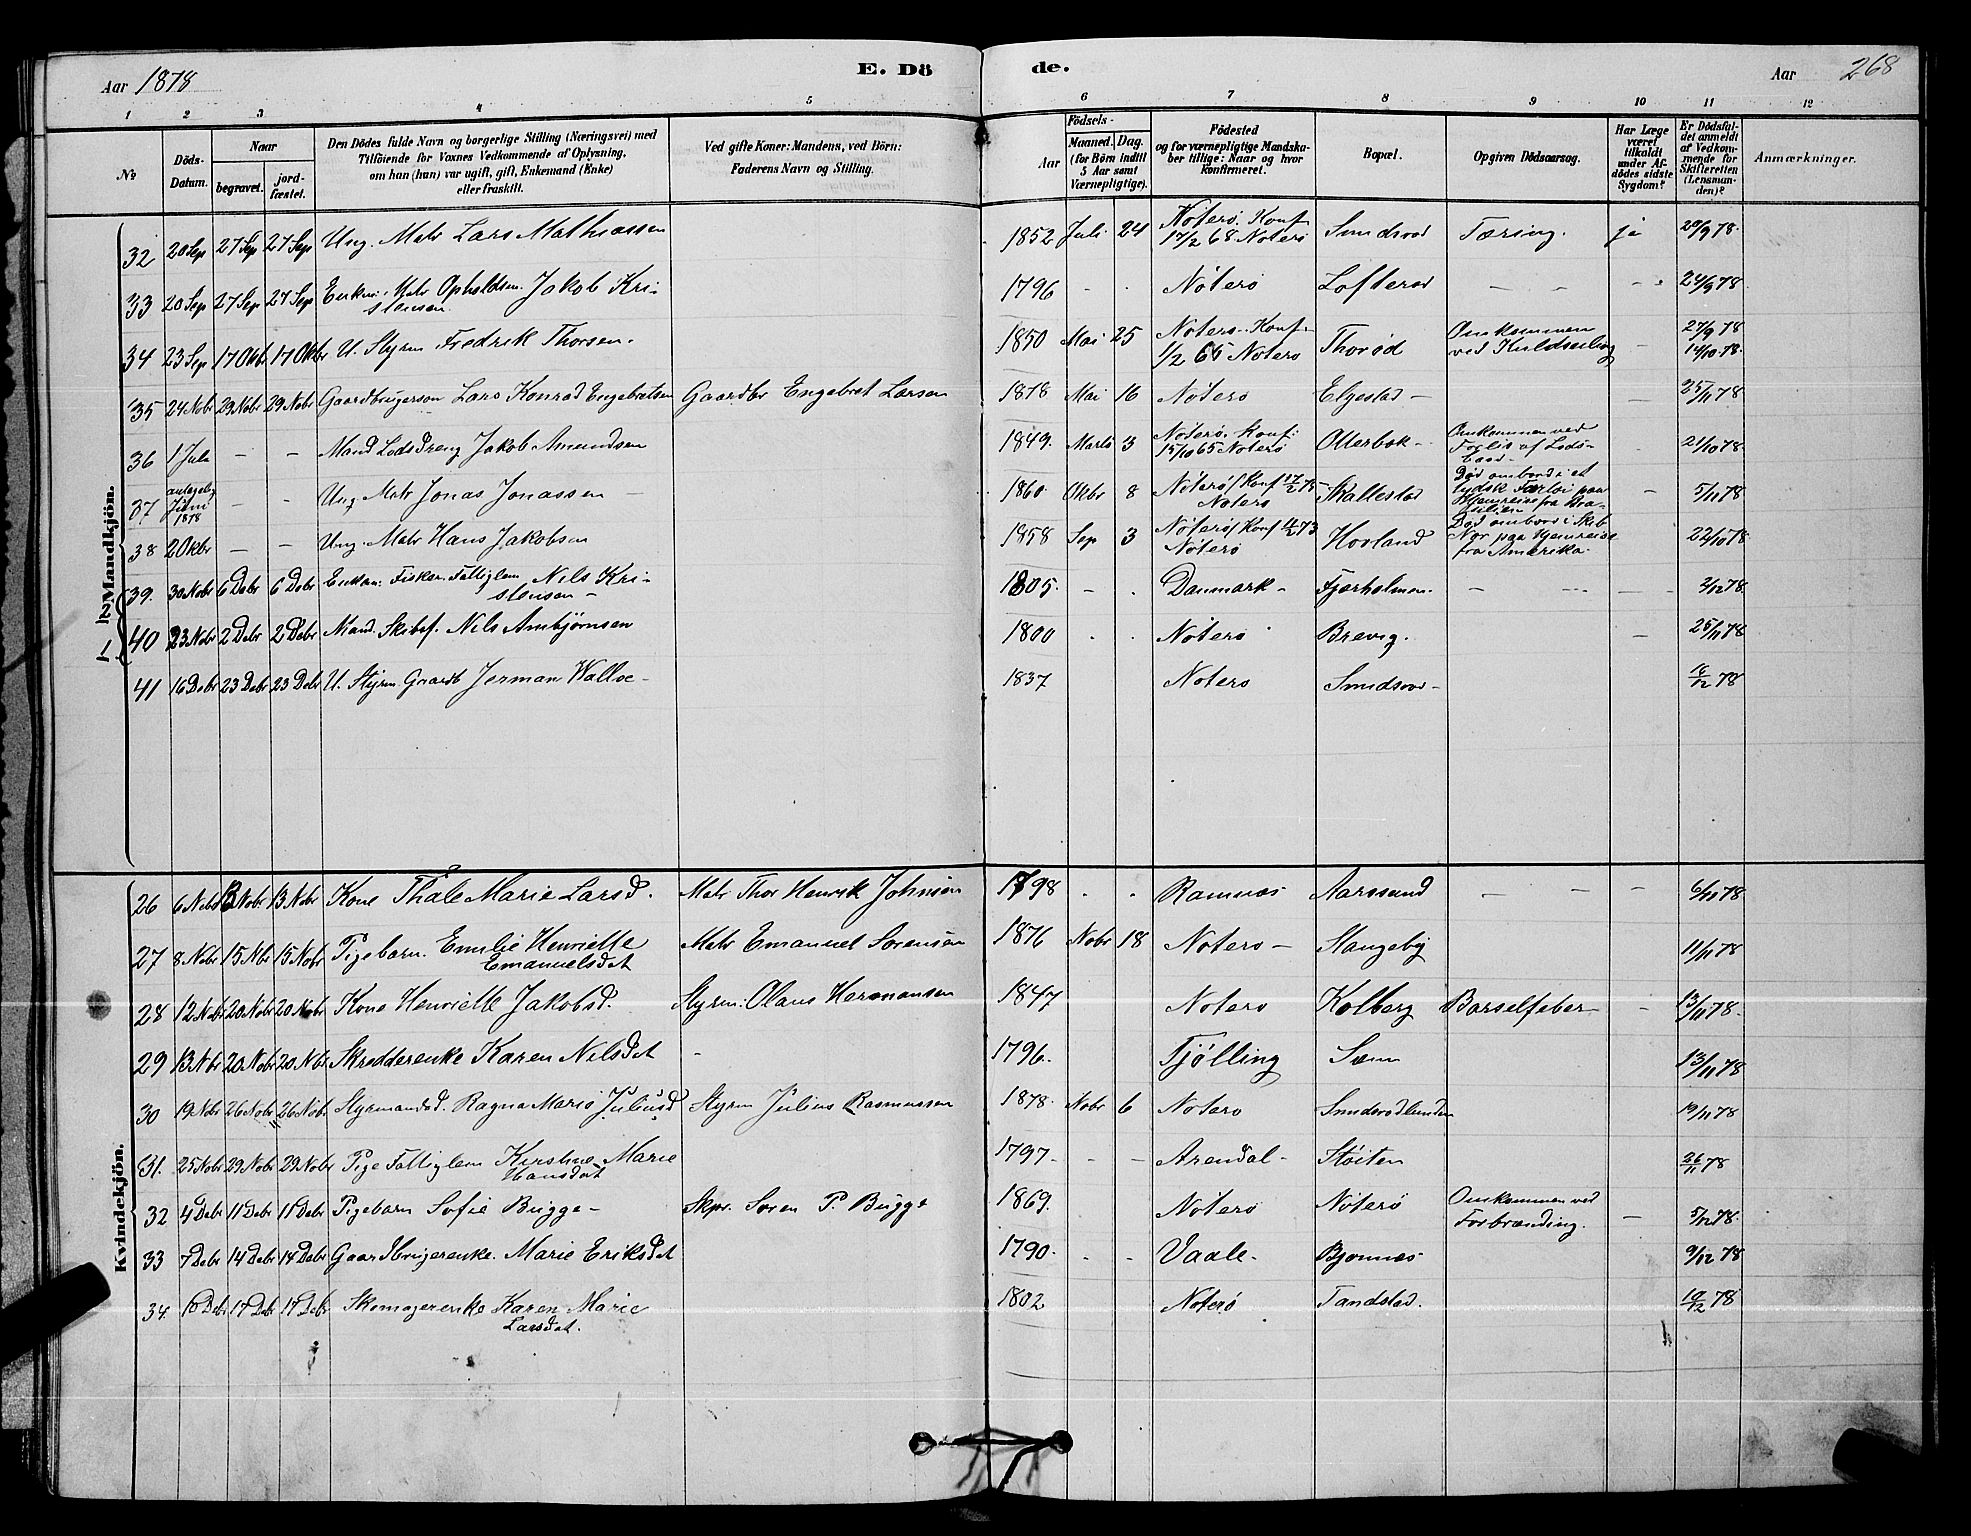 Aar 1878
E. Dö
de.
Aar
268
1 2 3 4 5 6 7 8 9 10 11 12
No
Döds-
Datum.
Naar
begravet.
jord-
fæstet.
Den Dödes fulde Navn og borgerlige Stilling (Næringsvei) med
Tilföiende for Voxnes Vedkommende af Oplysning,
om han (hun) var ugift, gift, Enkemand (Enke)
eller fraskilt.
Ved gifte Koner: Mandens, ved Börn:
Faderens Navn og Stilling.
Födsels-
Aar
Maaned. Dag.
(for Börn indtil
5 Aar samt
Værnepligtige).
Födested
og for værnepligtige Mandska-
ber tillige: Naar og hvor
konfirmeret.
Bopæl.
Opgiven Dödsaarsag.
Har Læge
været
tilkaldt
under Af-
dödes sidste
Sygdom?
Er Dödsfal-
det anmeldt
af Vedkom-
mende for
Skifteretten
(Lensman-
den)?
Anmærkninger.
Mandkjön.
32 20 Sep 27 Sep 27 Sep Ung. Matr Lars Mathiassen 1852 Juli 24 Nöterö. Konf. 17/2 68 Nöterö Smidsrod Tæring. ja 20/9 78.
33 20 Sep 27 Sep 27 Sep Enkm. Matr Opholdsm. Jakob Kri-
stensen. 1796 - - Nöterö Lofterod — — 24/9 78
34 23 Sep 17 Okt 17 Oktbr U. Styrm Fredrik Thorsen. 1850 Mai 25 Nöterö. Konf. 1/2 65 Nöterö Thoröd Omkommen
ved Kuldseiling - 27/9 78
14/10 78.
35 24 Nobr 29 Nobr 29 Nobr Gaardbrugerson Lars Konrad Engebretsen Gaardbr Engebret Larsen 1878 Mai 16 Nöterö Elgestad - - 25/11 78
36 1 Juli - - Mand Lodsdreng Jakob Amundsen 1849. Marts 3 Nöterö. Konf: 15/10 65 Nöterö Otterbæk - Omkommen ved
Forlis af Lods-
baad - 21/10 78.
37 antagelig
Juni
1878 - - Ung Matr Jonas Jonassen — 1860. Oktbr 8 Nöterö/Konf Nöterö Skallestad Död ombord i et
tydsk Fartöi paa
Hjemreise fra Bra-
silien - 5/11 78
38 2 Okbr - - Ung. Matr Hans Jakobsen 1858 Sep 3 Nöterö/Konf 4/2 73
Nöterö Hovland Död ombord i Skib
Nor paa Hjemreise
fra Amerika. 22/10 78
39. 30 Nobr 6 Debr 6 Debr Enkem. Fisker. Fattiglem Nils Kri-
stensen - 1805. - . Danmark - Fjærholmen. - - 3/12 78.
40 23 Nobr 2 Debr 2 Debr Mand. Skibsf. Nils Ambjörnsen 1800 . . Nöterö Brevig. - 25/11 78
41 16 Debr 23 Debr 23 Debr U. Styrm Gaardb Jerman Walloe - 1837 Nöterö Smidsrod - 18/12 78
Kvindekjön.
26 6 Nobr 13 Nobr 13 Nobr Kone Thale Marie Larsd. Matr Thor Henrik Johnsen 1798 . . Ramnæs Aarssund - - - 6/11 78
27 8 Nobr 15 Nbr 15 Nobr Pigebarn. Emilie Henriette
Emanuelsdat Matr Emanuel Sorensen 1876 Nobr 18 Nöterö - Stangeby 11/11 78
28 12 Nobr 20 Nobr 20 Nobr Kone Henriette Jakobsd. Styrm: Olaus Hermansen 1847 Nöterö Kolberg Barselfeber - 13/11 78.
29 13 Nbr 20 Nobr 20 Nbr Skredderenke Karen Nilsdat - 1796. Tjölling Sæm 13/11 78
30 19 Nobr 26 Nobr 26 Nobr Styrmandsd. Ragna Marie Juliusd Styrm Julius Rasmussen 1878. Nobr 6 Nöterö Smidsrodlunden 19/11 78
31. 25 Nobr 29 Nobr 29 Nobr Pige Fattiglem Kirstine Marie
Hansdat 1797. - - Arendal - Stöiten 26/11 78
32 4 Debr 11 Debr 11 Debr Pigebarn Sofie Bugge - Skpr. Soren P. Bugge 1869. Nöterö Nöterö Omkommen ved
Forbrænding. - 5/12 78.
33 7 Debr 14 Debr 14 Debr Gaardbrugerenke. Marie Eriksdat 1790. - - Vaale - Bjonnes 9/12 78
34. 10 Debr 17 Debr 17 Debr Skomagerenke Karen Marie
Larsdat. 1802 Nöterö Tandstad. 10/12 78